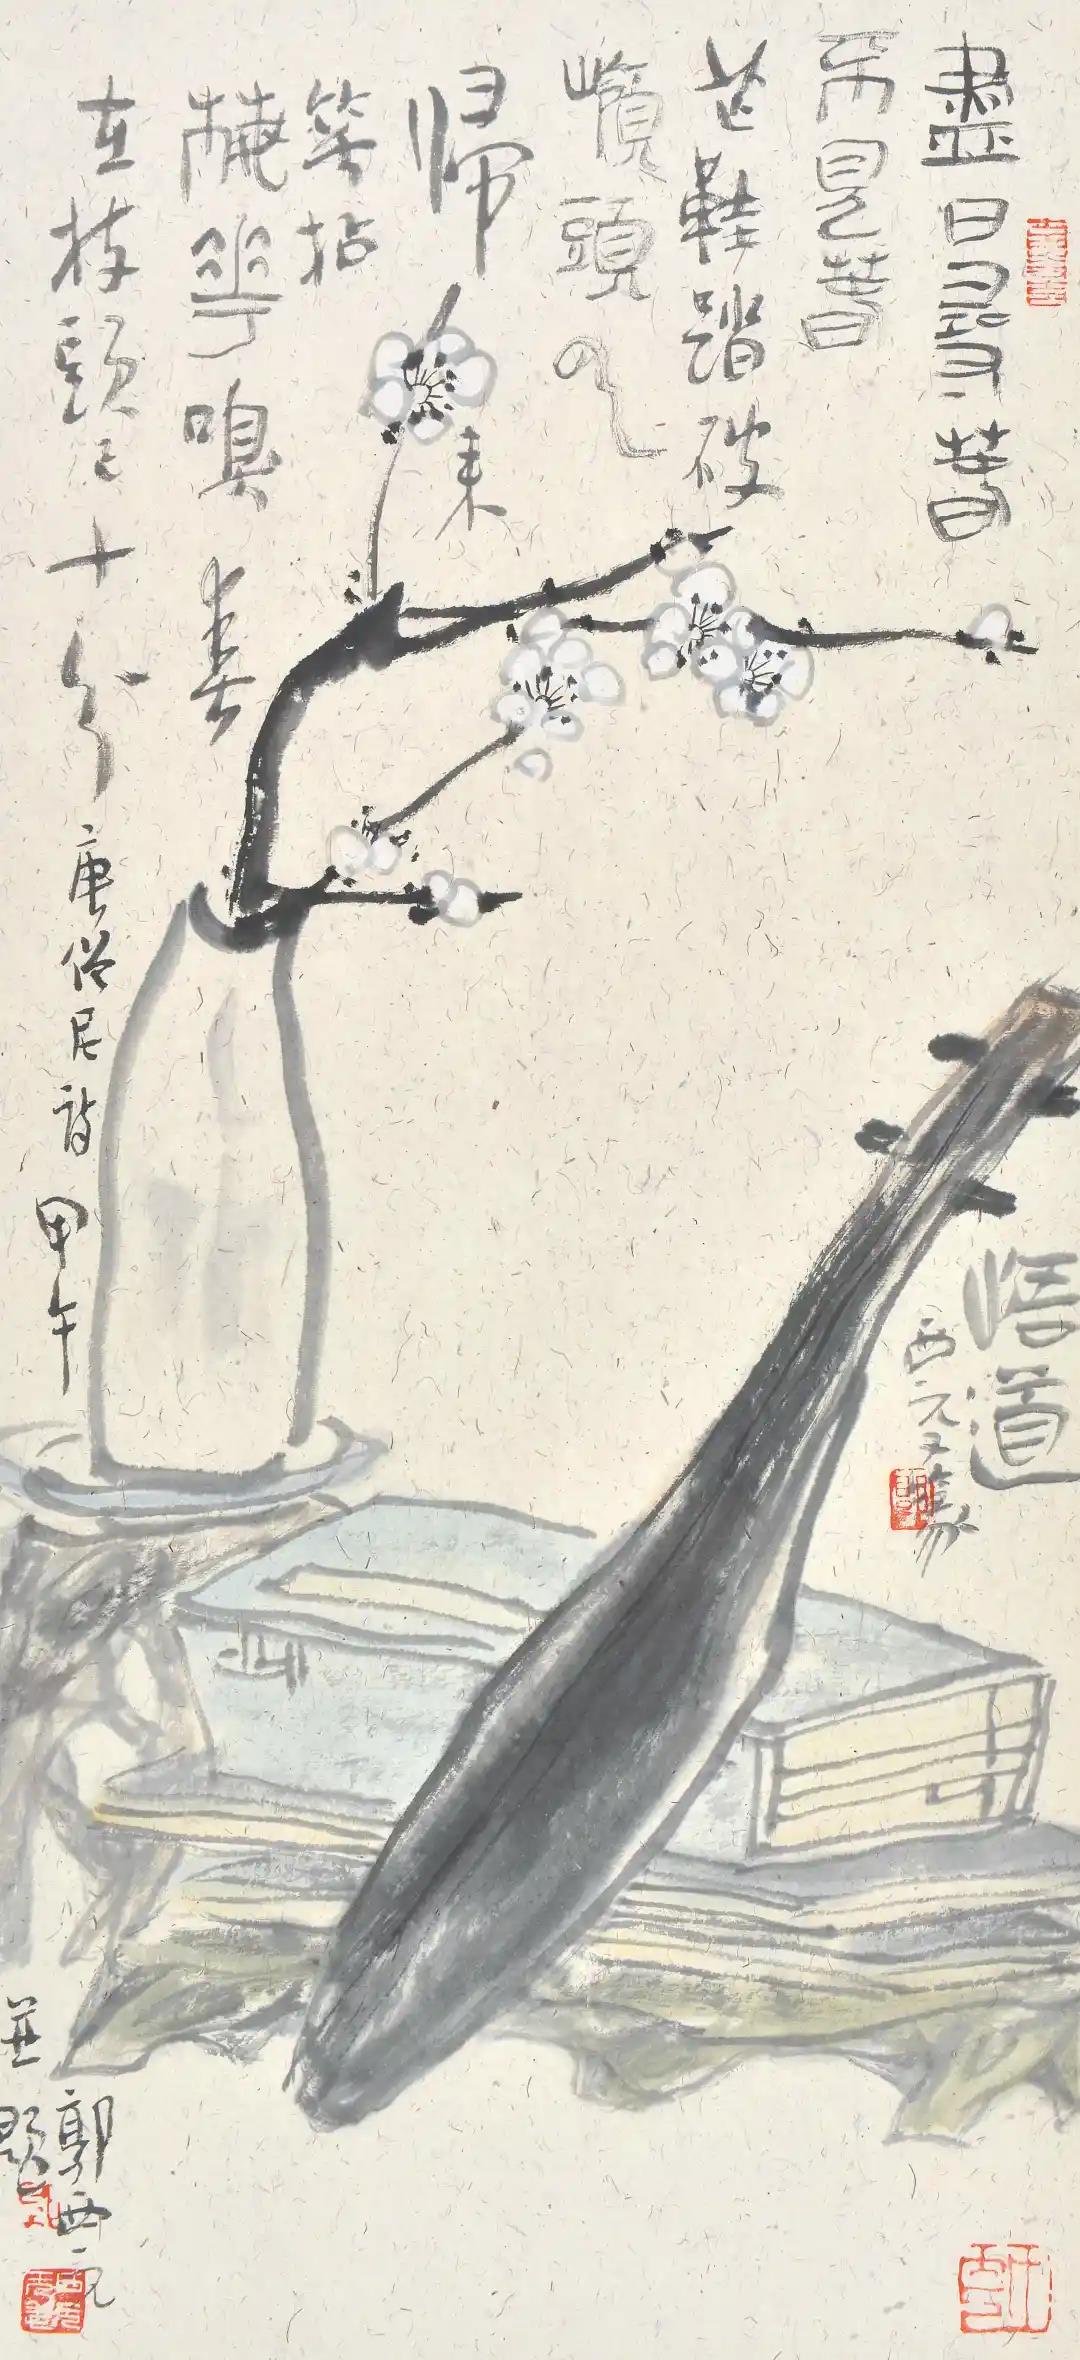 盡日尋春
不見春
芒鞋踏破
嶺頭雲
帰來
笑拈
梅花嗅春
在枝頭已十分唐俗尼詩
甲午
郭西元
並題
悟道
西元又篆